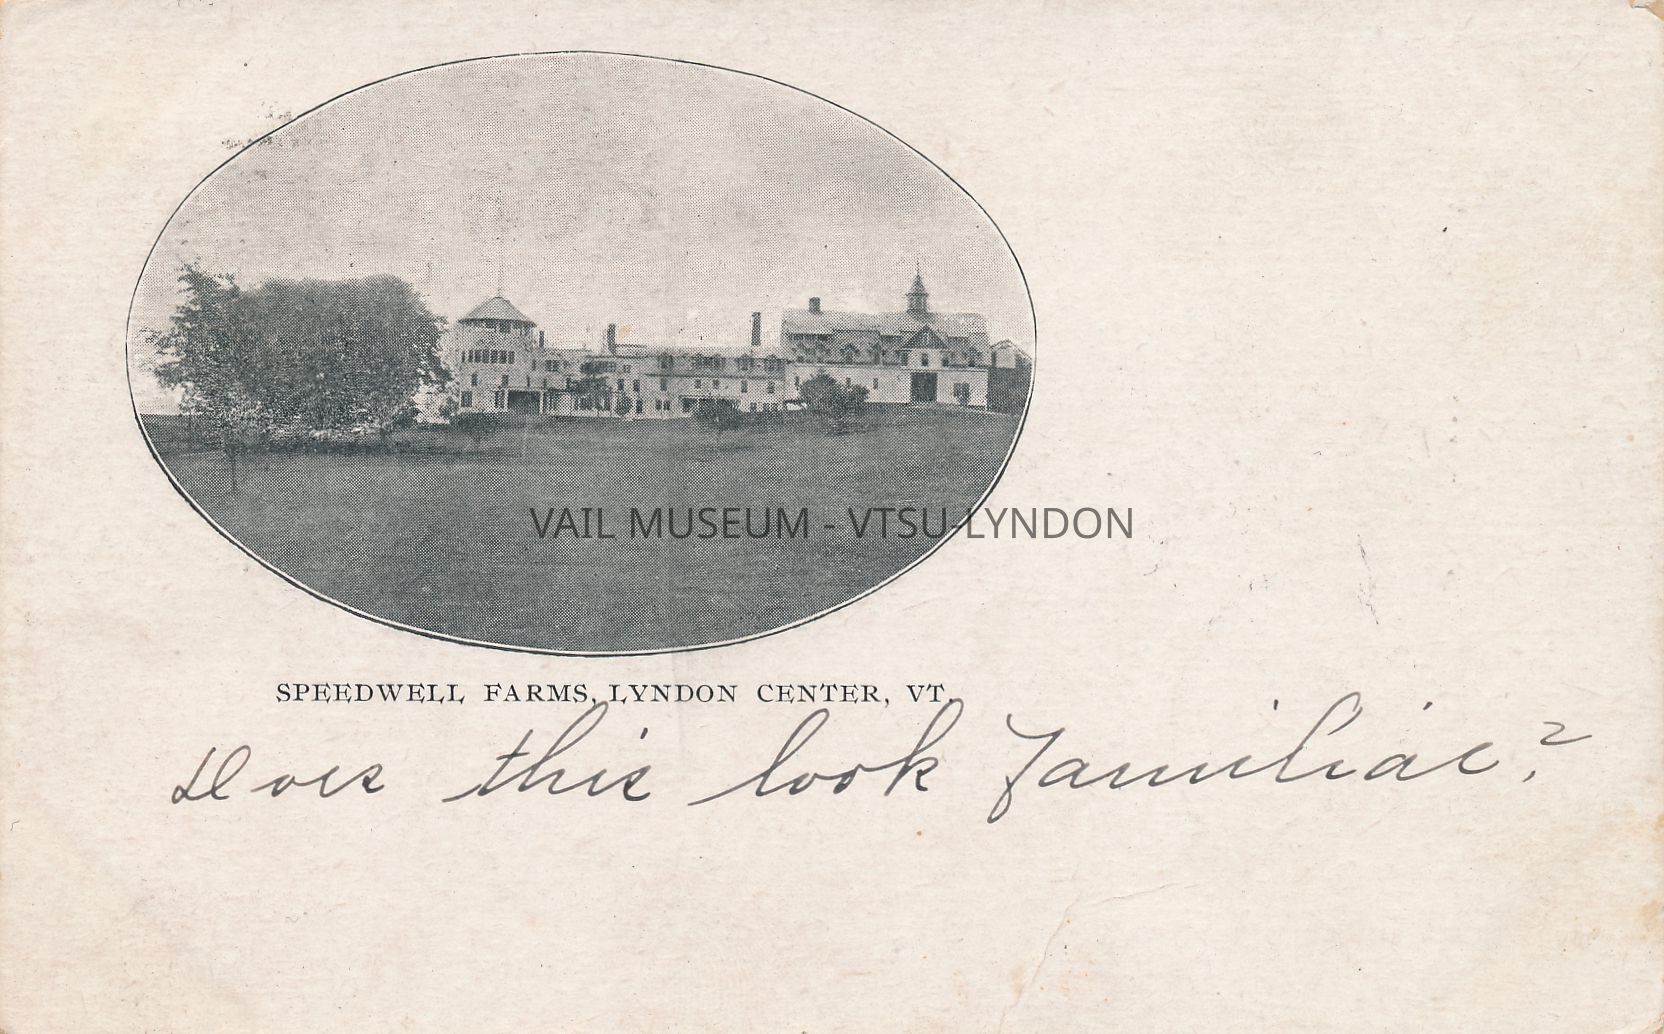 VAIL MUSEUM - VTSU-LYNDON
SPEEDWELL FARMS, LYNDON CENTER, VT.
Does this look familiar?